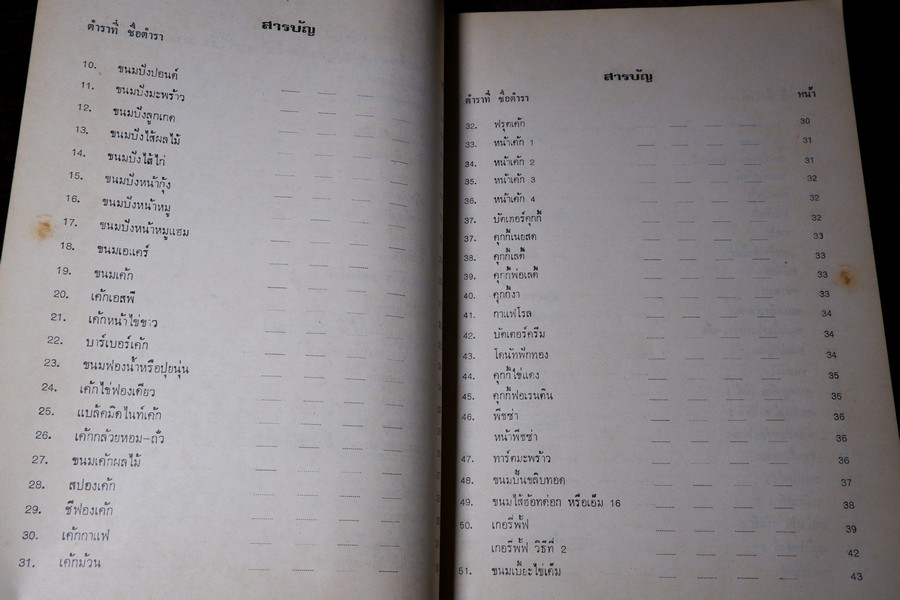 สารบัญ
ตำราที่ ชื่อตำรา
10. ขนมปังปอนด์
11. ขนมปังมะพร้าว
12. ขนมปังลูกเกด
13. ขนมปังไส้ผลไม้
14. ขนมปังไส้ไก่
15. ขนมปังหน้ากุ้ง
16. ขนมปังหน้าหมู
17. ขนมปังหน้าหมูแฮม
18. ขนมเอแคร์
19. ขนมเค้ก
20. เค้กเอสพี
21. เค้กหน้าไข่ขาว
22. บาร์เบอร์เค้ก
23. ขนมฟองน้ำหรือปุยนุ่น
24. เค้กไข่ฟองเดียว
25. แบล้คมิดไนท์เค้ก
26. เค้กกล้วยหอม-ถั่ว
27. ขนมเค้กผลไม้
28. สปองเค้ก
29. ชีฟองเค้ก
30. เค้กกาแฟ
31. เค้กม้วน
สารบัญ
ตำราที่ ชื่อตำรา หน้า
32. ฟรุตเค้ก 30
33. หน้าเค้ก 1 31
34. หน้าเค้ก 2 31
35. หน้าเค้ก 3 32
36. หน้าเค้ก 4 32
37. บัตเทอร์คุกกี้ 32
37. คุกกี้เนยสด 33
38. คุกกี้เสต้ 33
39. คุกกี้พ่อเสต้ 33
40. คุกกี้งา 33
41. กาแฟโรล 34
42. บัตเตอร์ครีม 34
43. โดนัทฟักทอง 34
44. คุกกี้ไข่แดง 35
45. คุกกี้ฟอเรนติน 35
46. พีซซ่า 36
หน้าพีซซ่า 36
47. ทาร์ตมะพร้าว 36
48. ขนมปั้นขลิบทอด 37
49. ขนมไส้ฮ้อทด่อก หรือเอ็ม 16 38
50. เกอรี่พั้ฟ 39
เกอรี่พั้ฟ วิธีที่ 2 42
51. ขนมเปี๊ยะไข่เค็ม 43